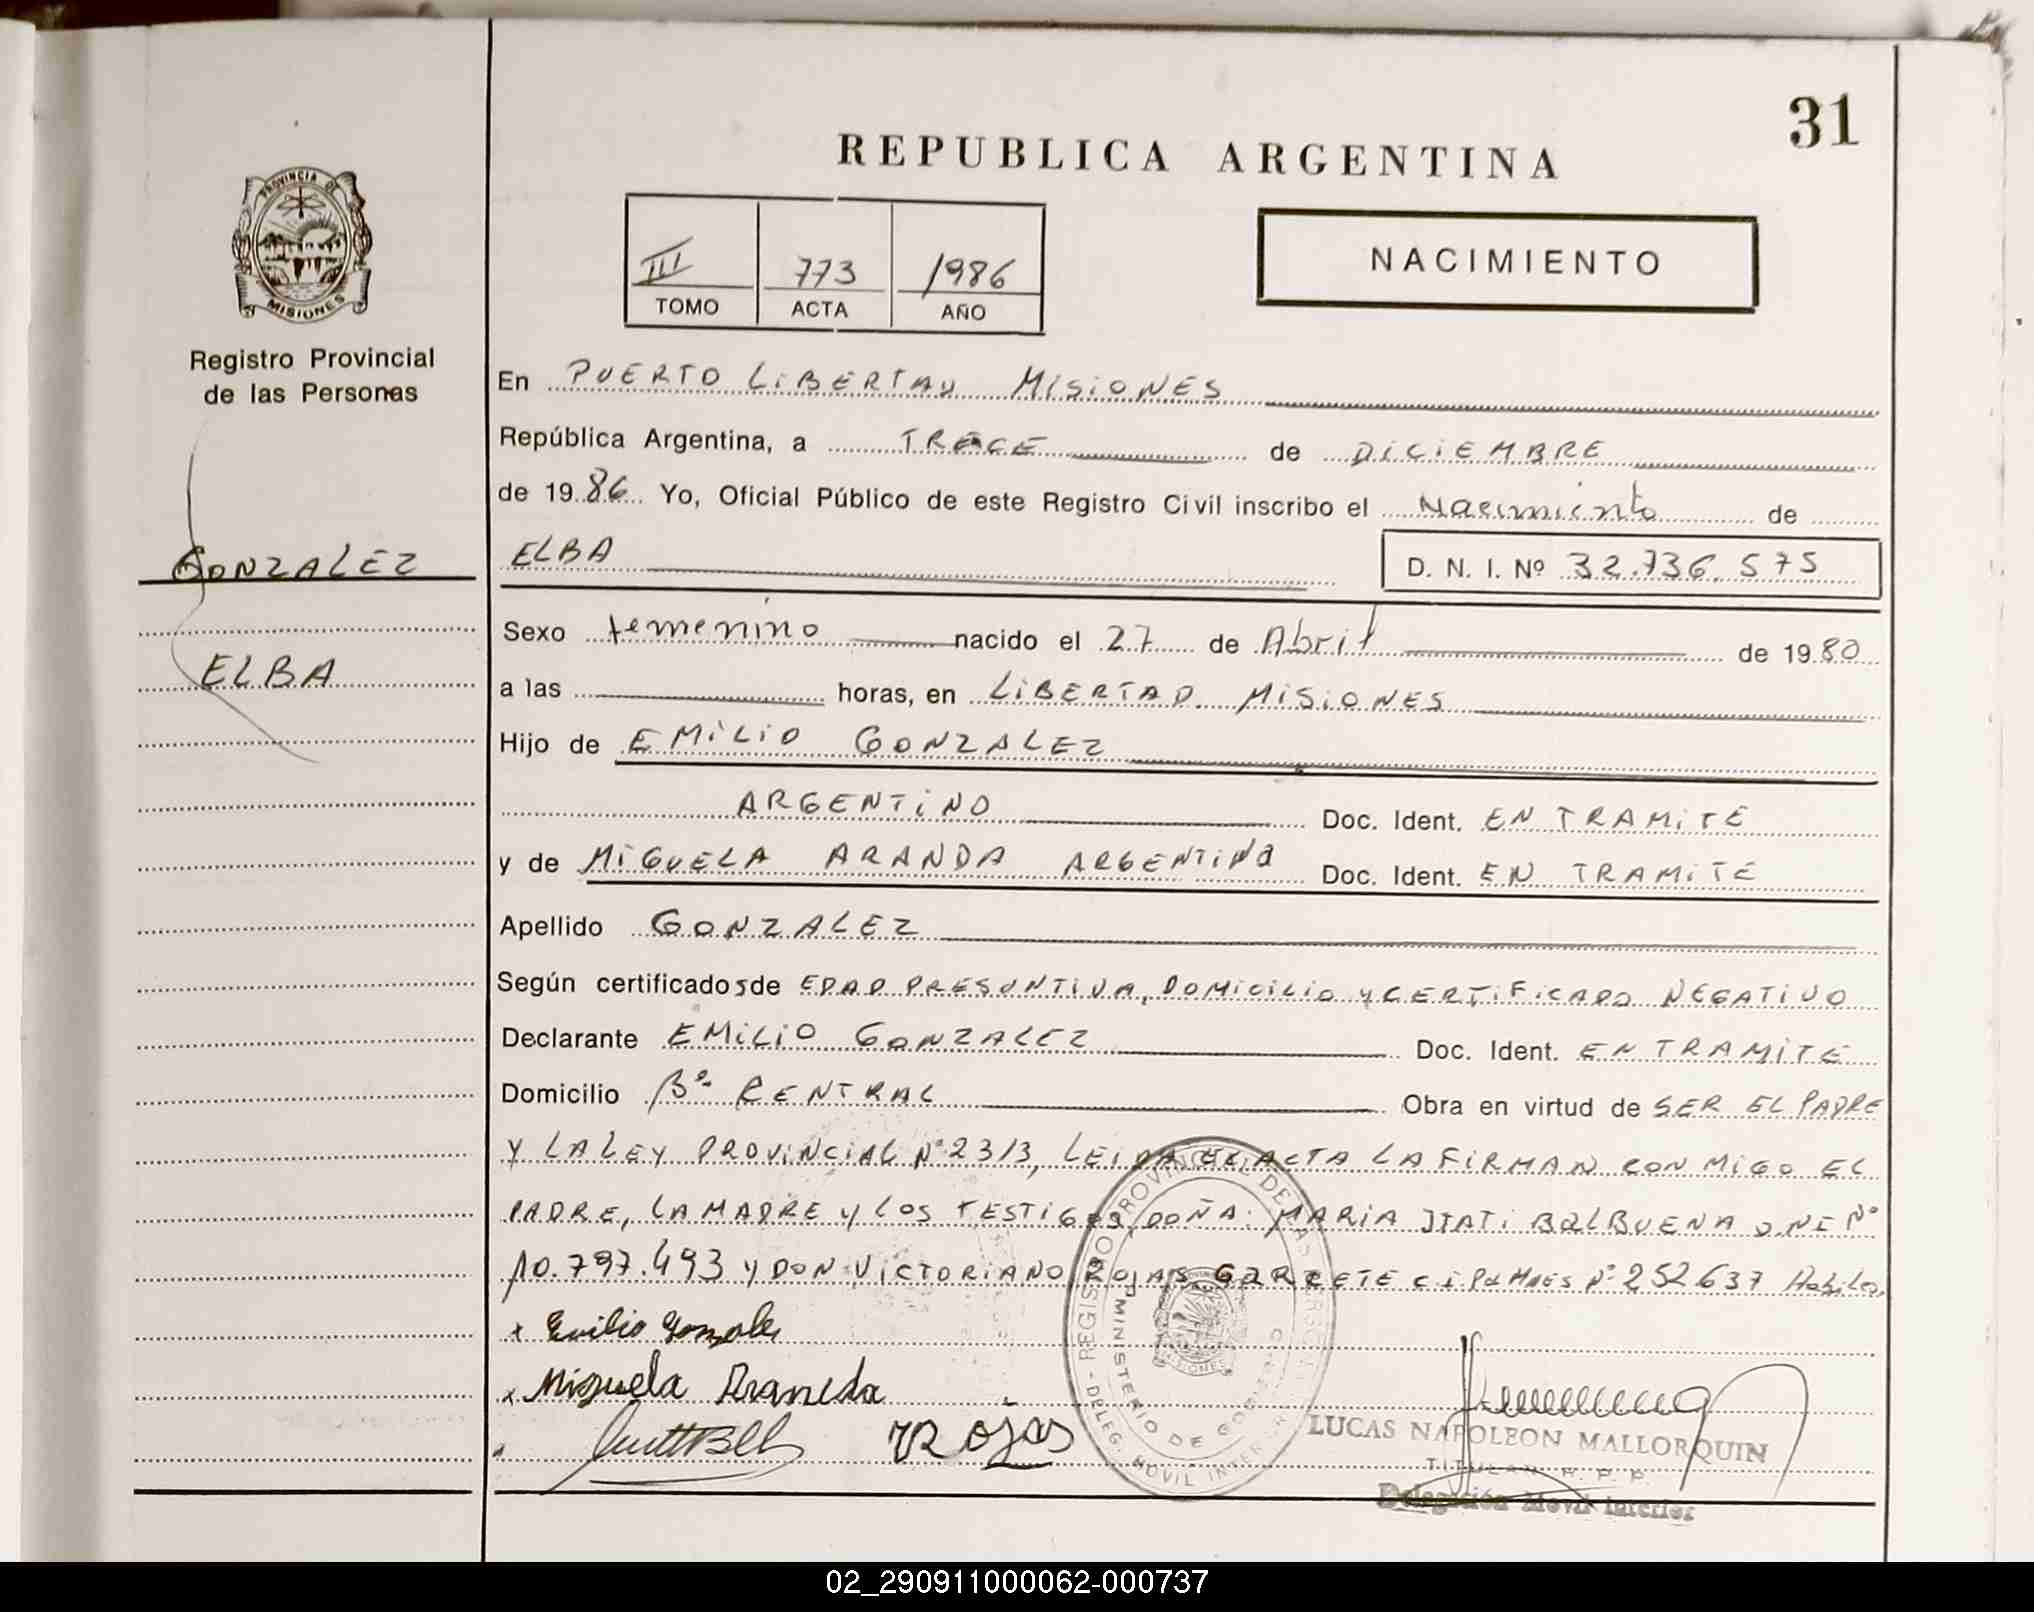 31
REPUBLICA ARGENTINA
III 773 1986
TOMO ACTA AÑO
NACIMIENTO
PROVINCIA DE
MISIONES
Registro Provincial
de las Personas
GONZALEZ
ELBA
En PUERTO LIBERTAD MISIONES
República Argentina, a TRECE de DICIEMBRE
de 1986 Yo, Oficial Público de este Registro Civil inscribo el Nacimiento de
ELBA D. N. I. Nº 32.736.575
Sexo femenino nacido el 27 de Abril de 1980
a las horas, en LIBERTAD MISIONES
Hijo de EMILIO GONZALEZ
ARGENTINO Doc. Ident. EN TRAMITE
y de MIGUELA ARANDA ARGENTINA Doc. Ident. EN TRAMITE
Apellido GONZALEZ
Según certificados de EDAD PRESUNTIVA, DOMICILIO Y CERTIFICADO NEGATIVO
Declarante EMILIO GONZALEZ Doc. Ident. EN TRAMITE
Domicilio Bº CENTRAL Obra en virtud de SER EL PADRE
Y LA LEY PROVINCIAL Nº 2313, LEIDA EL ACTA LA FIRMAN CON MIGO EL
PADRE, LA MADRE Y LOS TESTIGOS, DOÑA: MARIA ITATI BALBUENA D.N.I Nº
10.797.493 Y DON VICTORIANO ROJAS GARRETE C.I. Nº 252.637
x Emilio Gonzalez
x Miguela Aranda
VRojas
REGISTRO PROVINCIAL DE LAS PERSONAS
MINISTERIO DE GOBIERNO
DELEG. MOVIL INTERIOR
MISIONES
LUCAS NAPOLEON MALLORQUIN
TITULAR R. P. P.
Delegación Movil Interior
02_290911000062-000737